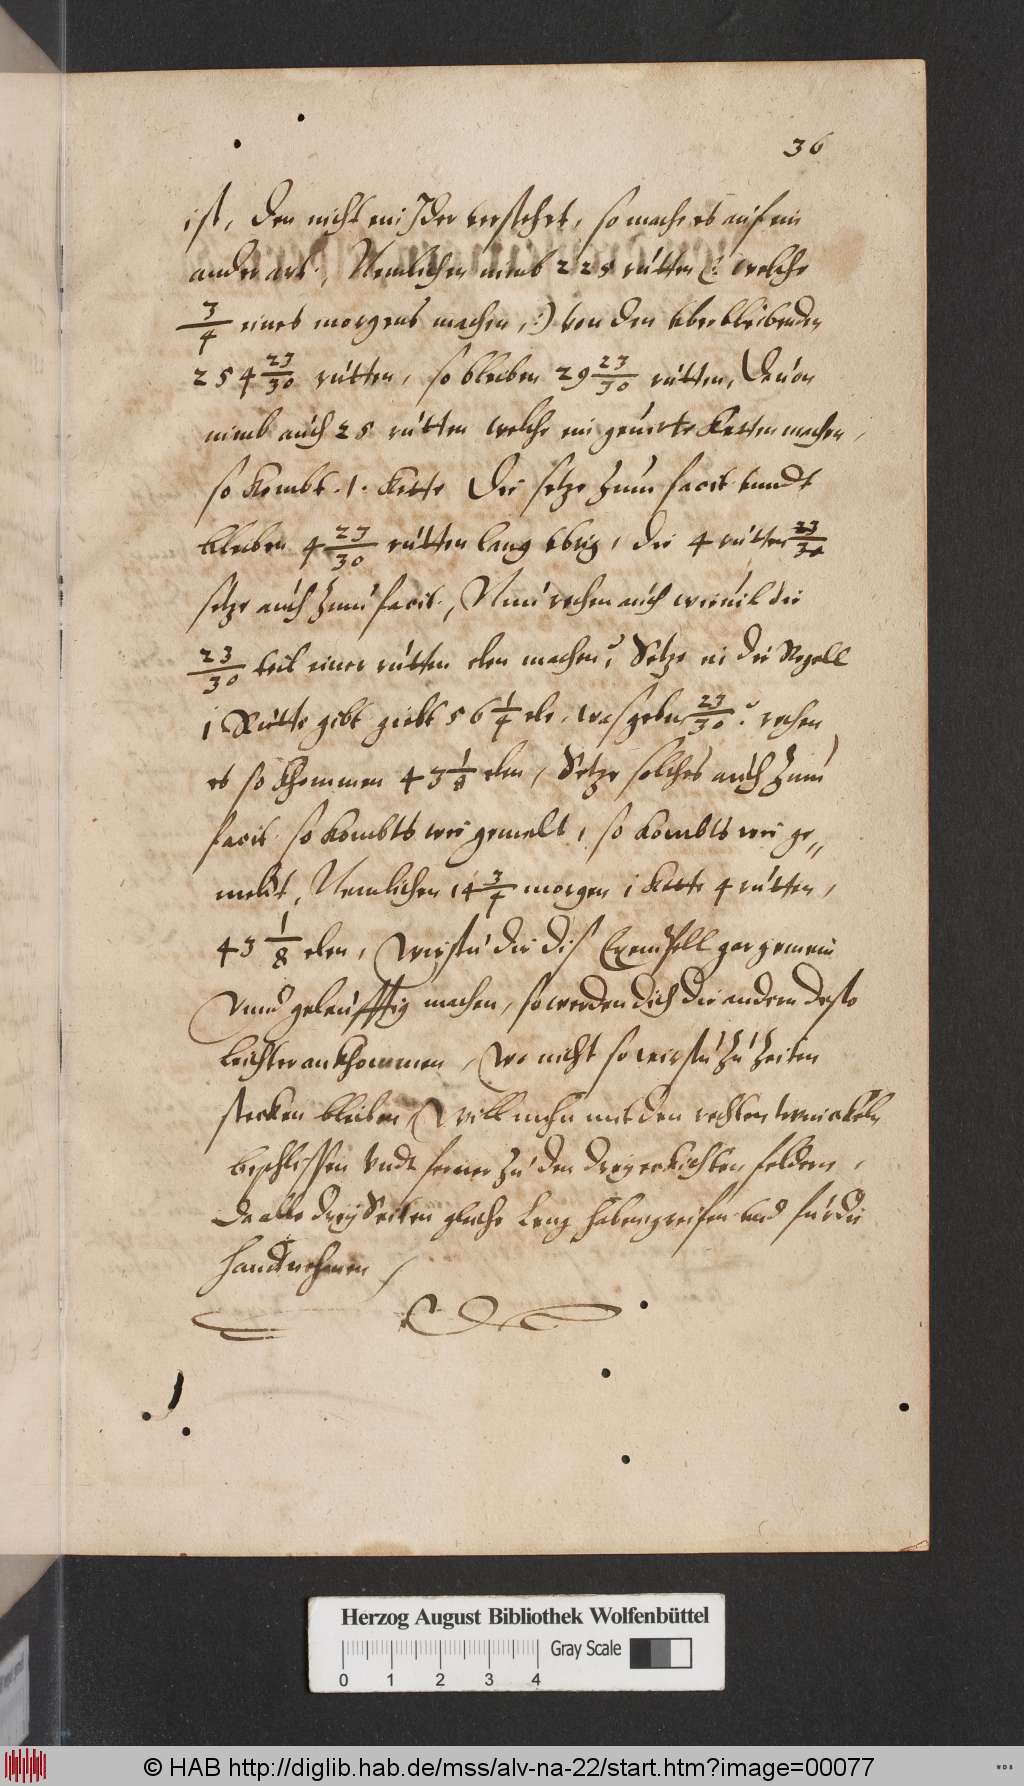 36
ist, den nicht ein Jder verstehet, so mache es auf ein
ander art, Nemlichen nimb 225 rütten (: welche
3/4 eines morgens machen, :) von den überbleibenden
254 23/30 rütten, so bleiben 29 23/30 rütten, Dauon
nimb auch 25 rütten welche ein geuirte Ketten machen,
so kombt .1. Kette Die setze zum facit vnndt
bleiben 4 23/30 rütten lang vbrig, die 4 rütten 23/30
setze auch zum facit, Nun rechen auch wieuil die
23/30 teil einer rütten elen machen, Setze in die Regell
1 Rütte gibt giebt 56 1/4 ele, was geben 23/30? rechen
es so khommen 43 1/8 elen, Setze solches auch zum
facit so kombts wie gemelt, so kombts wie ge„
meldt, Nemlichen 14 3/4 morgen 1 Kette 4 rütten,
43 1/8 elen, Wirstu dir dis Exempell gar gemein
vnnd geleuffftig machen, so werden dich die andern desto
leichter ankhommen, Wo nicht so wirstu zu Zeiten
stecken bleiben, Will nuhn mit den rechten winckeln
beschlissen vndt ferner zu den dreyeckichten feldern,
da alle drey Seiten gleiche leng haben greifen vnd für die
handt nehmen
Herzog August Bibliothek Wolfenbüttel
0 1 2 3 4
Gray Scale
© HAB http://diglib.hab.de/mss/alv-na-22/start.htm?image=00077